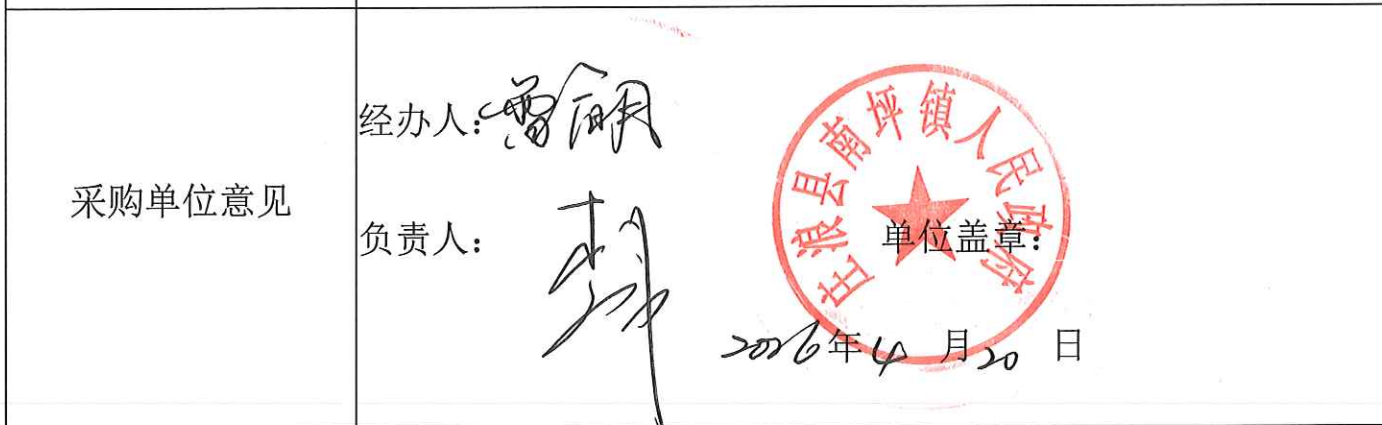 采购单位意见
经办人:
负责人:
单位盖章:
庄浪县南坪镇人民政府
2026年4月20日